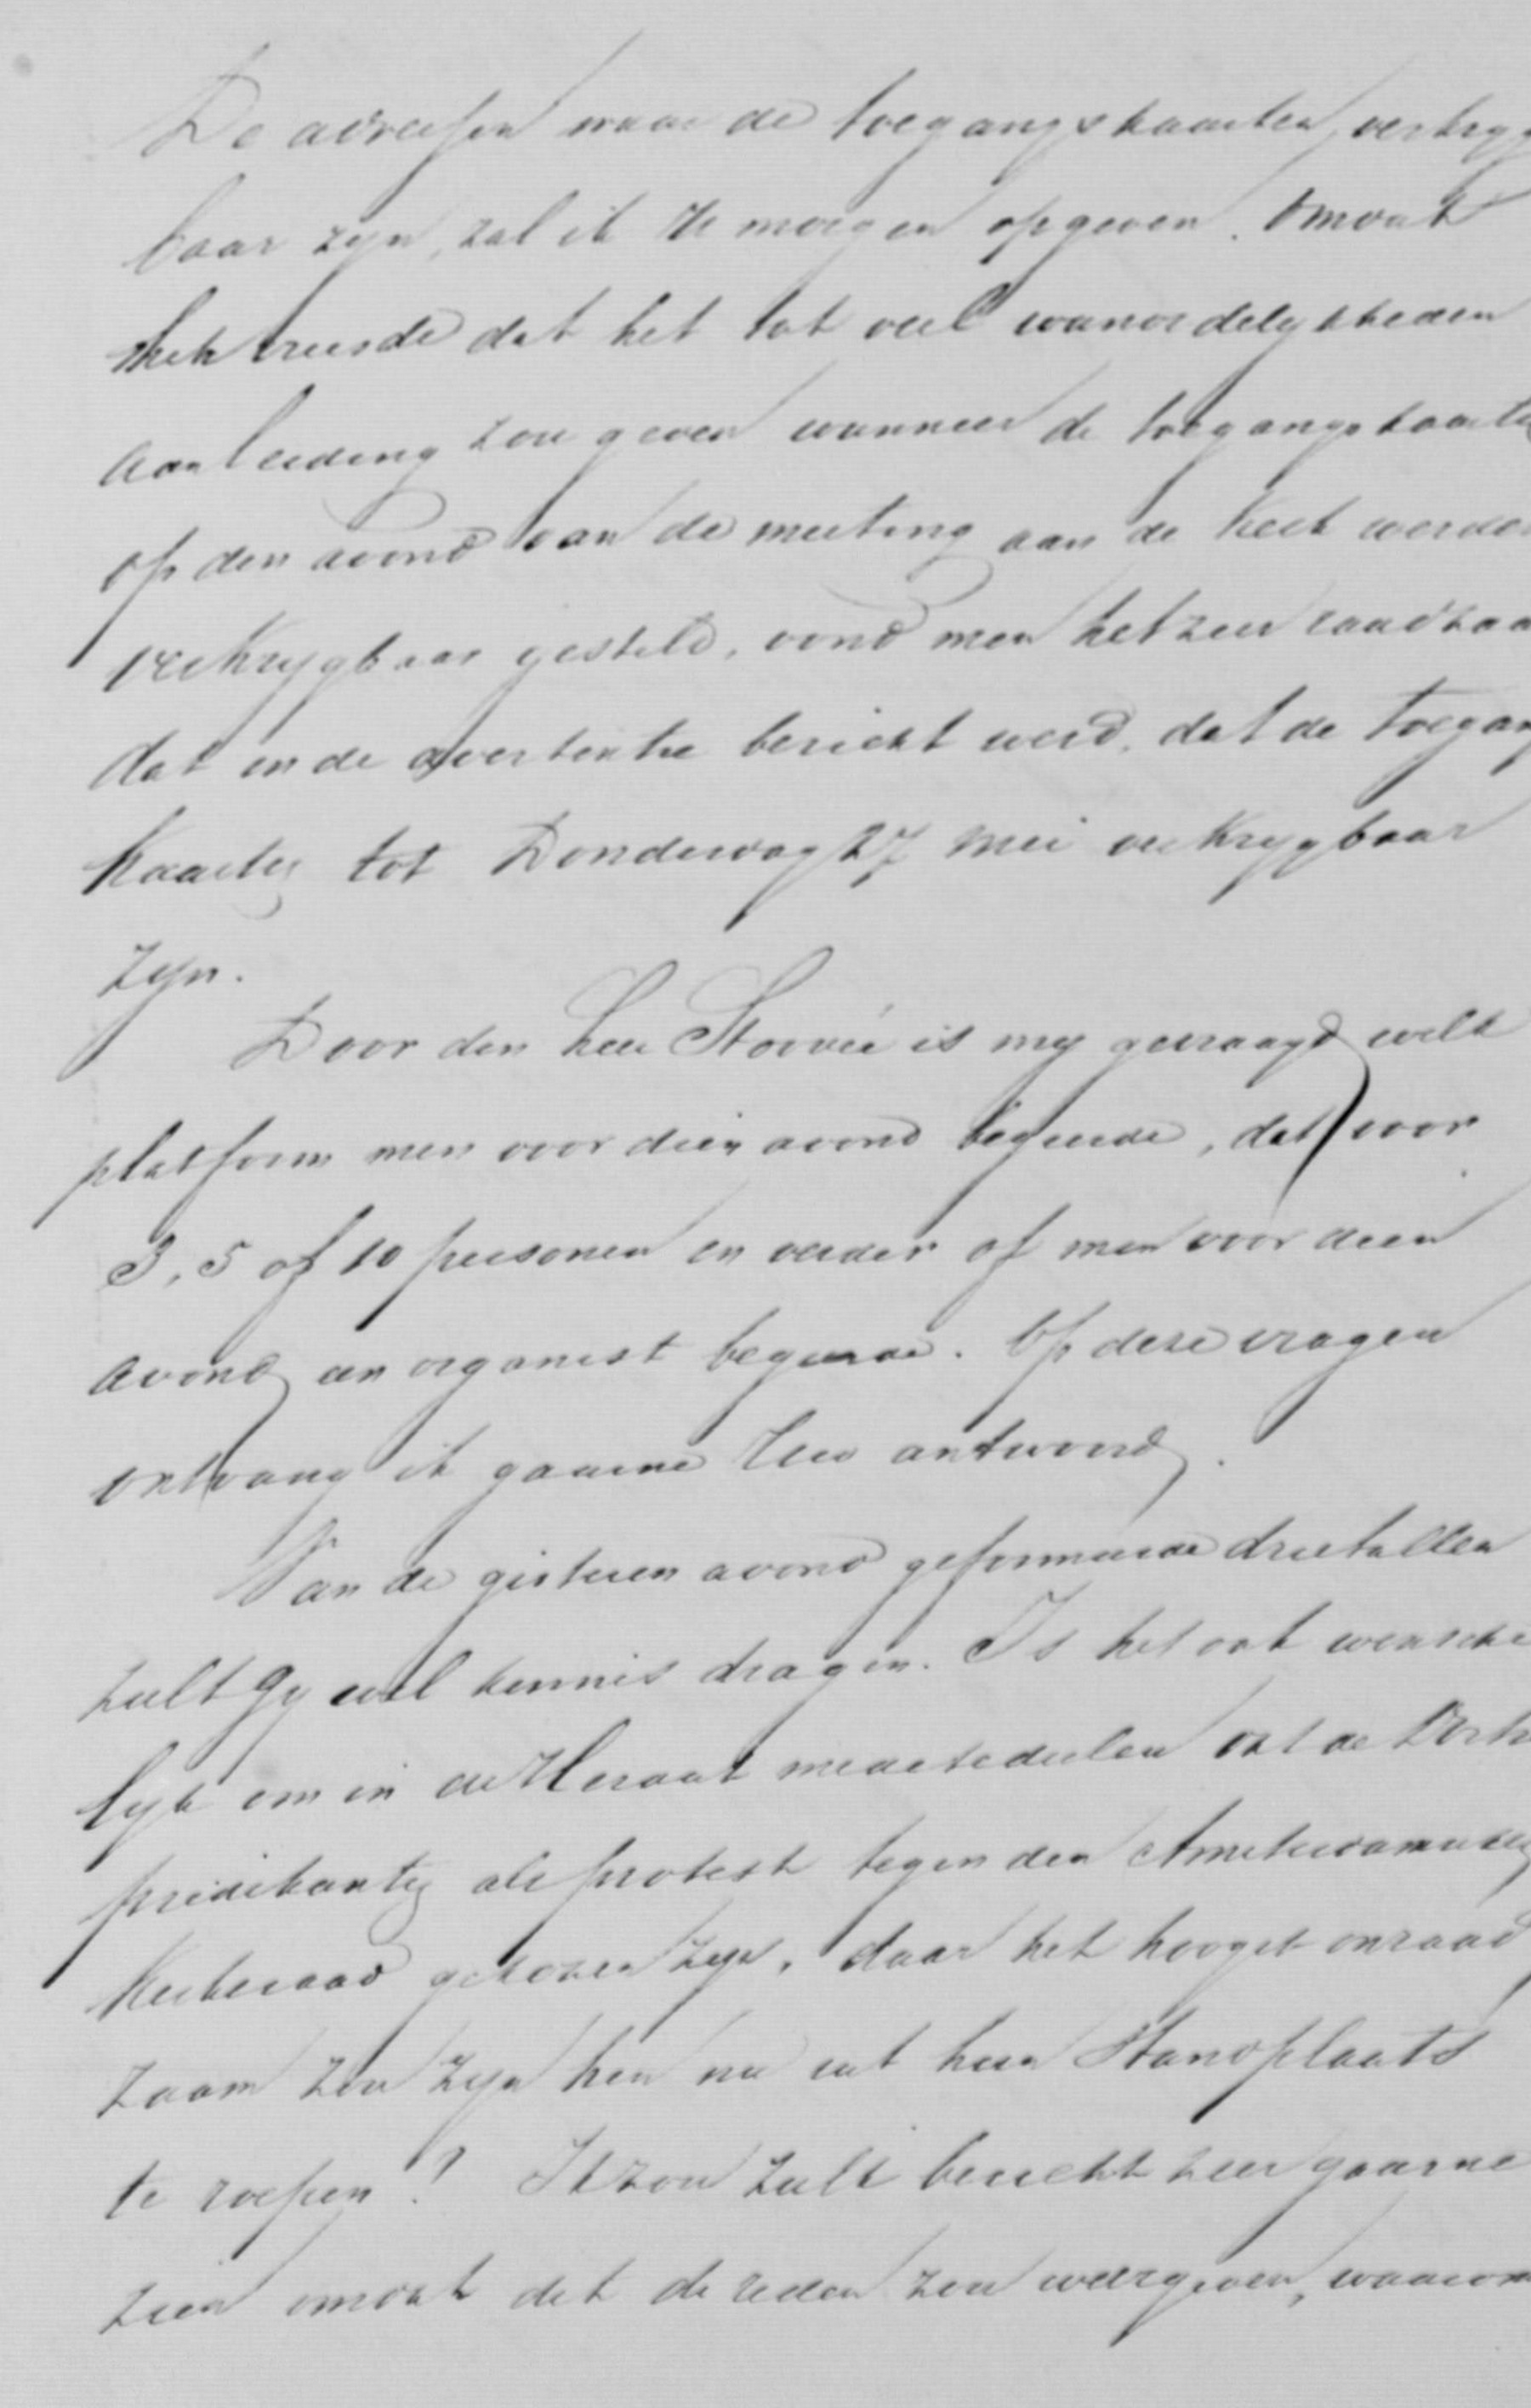 De adressen waar de toegangskaarten verkryg
baar zyn, zal ik U morgen opgeven. Omdat
men vreesde dat het tot veel wanordelykheden
aanleiding zou geven wanneer de toegangskaarten
op den avond van de meeting aan de kerk werden
verkrygbaar gesteld, vond men het zeer raadzaa
dat in de advertentie bericht werd, dat de toegan
kaarten tot Donderdag 27 Mei verkrygbaar
zyn.
Door den heer Stoové is my gevraagd welk
platform men voor dien avond begeerde, dat voor
3, 5 of 10 personen en verder of men voor dien
avond een organist begeerde. Op deze vragen
ontvang ik gaarne Uw antwoord.
Van de gisteren avond geformeerde drietallen
zult Gy wel kennis dragen. Is het ook wensche
lyk om in de Heraut mede te deelen dat de
predikanten als protest tegen den Amsterdamschen
Kerkeraad gekozen zyn, daar het hoogst onraad
zaam zou zyn hen nu uit hun Standplaats
te roepen? Ik zou zulk bericht zeer gaarne
zien omdat dit de reden zou weergeven, waarom